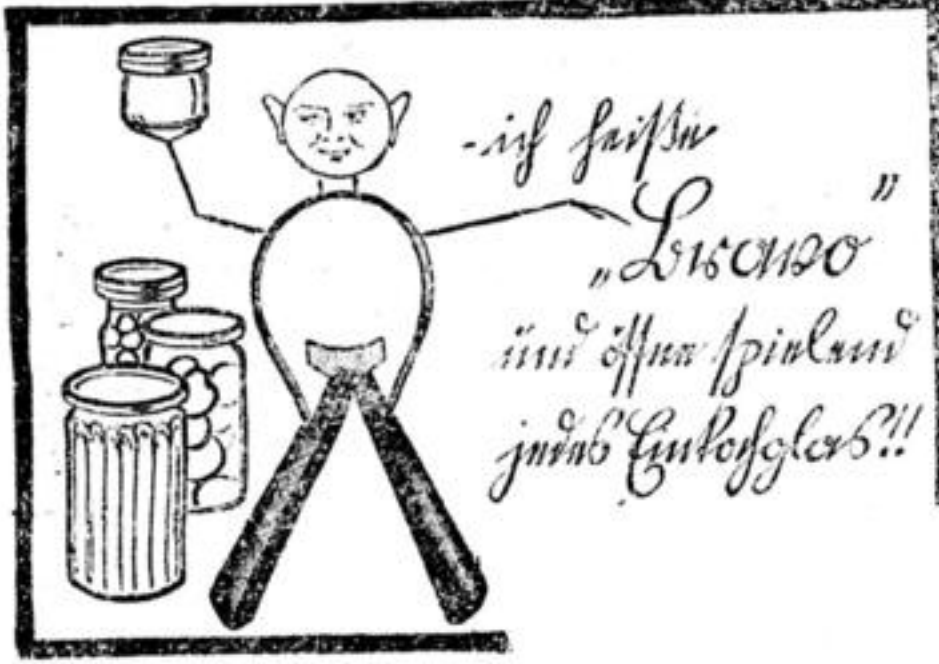 -ich heiße
„Bravo"
und öffne spielend
jedes Einkochglas!!